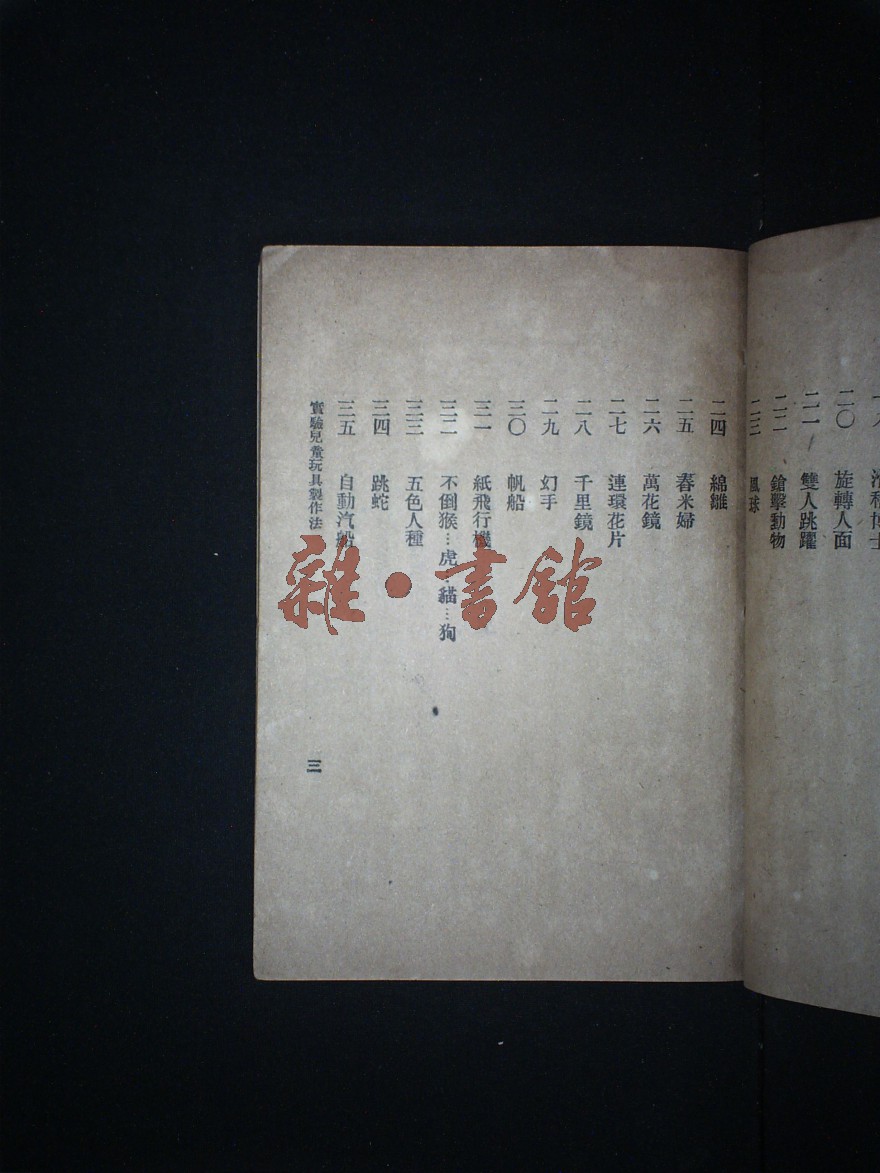 二〇　旋轉人面
二一　雙人跳躍
二二　鎗擊動物
二三　風球
二四　綿雛
二五　舂米婦
二六　萬花鏡
二七　連環花片
二八　千里鏡
二九　幻手
三〇　帆船
三一　紙飛行機
三二　不倒猴…虎…貓…狗
三三　五色人種
三四　跳蛇
三五　自動汽船
實驗兒童玩具製作法　三
雜·書館